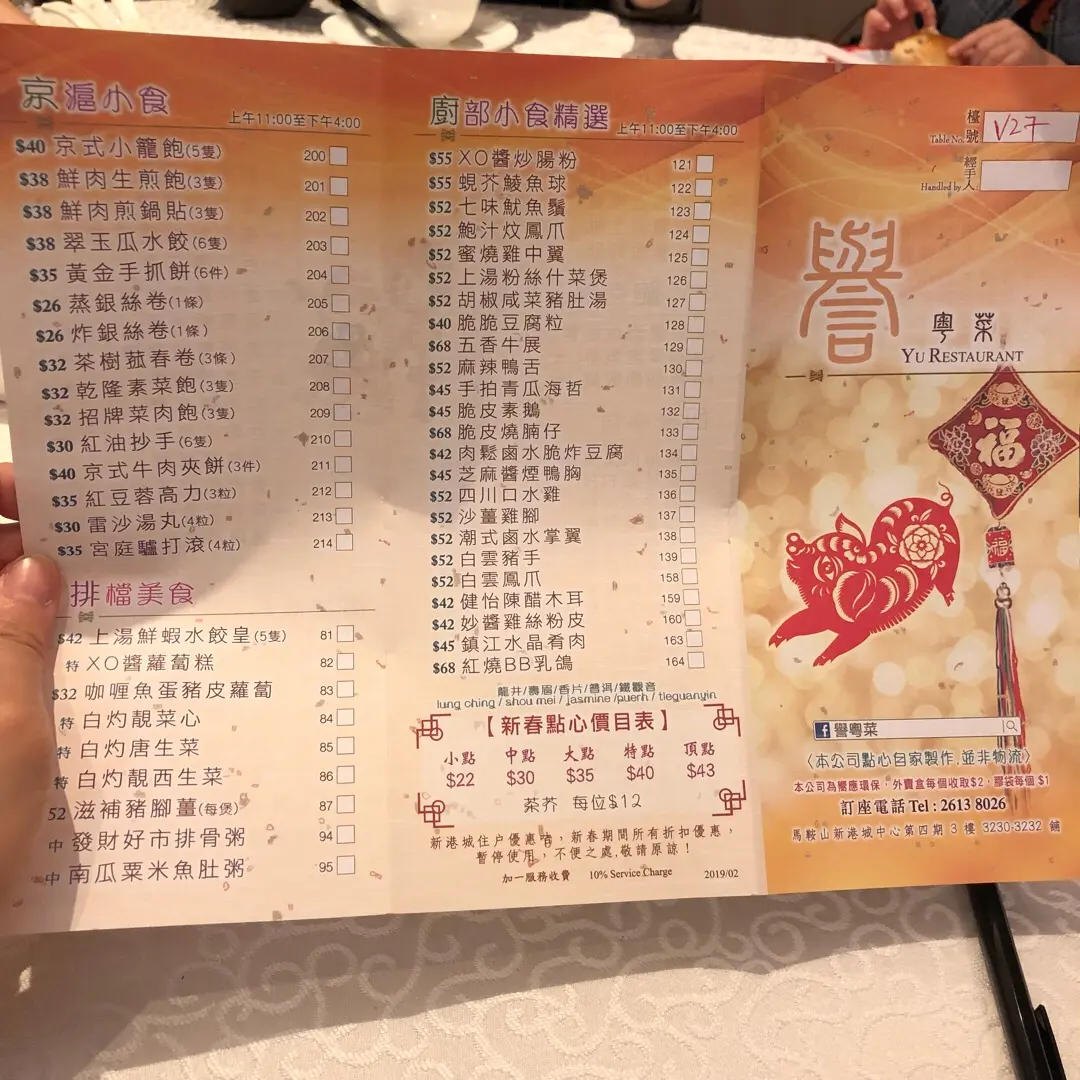 京滬小食
上午11:00至下午4:00
$40 京式小籠飽(5隻) 200
$38 鮮肉生煎飽(3隻) 201
$38 鮮肉煎鍋貼(3隻) 202
$38 翠玉瓜水餃(6隻) 203
$35 黃金手抓餅(6件) 204
$26 蒸銀絲卷(1條) 205
$26 炸銀絲卷(1條) 206
$32 茶樹菰春卷(3條) 207
$32 乾隆素菜飽(3隻) 208
$32 招牌菜肉飽(3隻) 209
$30 紅油抄手(6隻) 210
$40 京式牛肉夾餅(3件) 211
$35 紅豆蓉高力(3粒) 212
$30 雷沙湯丸(4粒) 213
$35 宮庭驢打滾(4粒) 214
排檔美食
$42 上湯鮮蝦水餃皇(5隻) 81
特 XO醬蘿蔔糕 82
$32 咖喱魚蛋豬皮蘿蔔 83
特 白灼靚菜心 84
特 白灼唐生菜 85
特 白灼靚西生菜 86
52 滋補豬腳薑(每煲) 87
中 發財好市排骨粥 94
中 南瓜粟米魚肚粥 95
廚部小食精選
上午11:00至下午4:00
$55 XO醬炒腸粉 121
$55 蜆芥鯪魚球 122
$52 七味魷魚鬚 123
$52 鮑汁炆鳳爪 124
$52 蜜燒雞中翼 125
$52 上湯粉絲什菜煲 126
$52 胡椒咸菜豬肚湯 127
$40 脆脆豆腐粒 128
$68 五香牛展 129
$52 麻辣鴨舌 130
$45 手拍青瓜海哲 131
$45 脆皮素鵝 132
$68 脆皮燒腩仔 133
$42 肉鬆鹵水脆炸豆腐 134
$45 芝麻醬煙鴨胸 135
$52 四川口水雞 136
$52 沙薑雞腳 137
$52 潮式鹵水掌翼 138
$52 白雲豬手 139
$52 白雲鳳爪 158
$42 健怡陳醋木耳 159
$42 妙醬雞絲粉皮 160
$45 鎮江水晶肴肉 163
$68 紅燒BB乳鴿 164
龍井/壽眉/香片/普洱/鐵觀音
lung ching / shou mei / jasmine /puerh / tieguanyin
【新春點心價目表】
小點 中點 大點 特點 頂點
$22 $30 $35 $40 $43
茶芥 每位$12
新港城住戶優惠咭，新春期間所有折扣優惠，
暫停使用，不便之處,敬請原諒！
加一服務收費 10% Service Charge 2019/02
檯號
Table No. V27
經手人
Handled by
譽
粵菜
YU RESTAURANT
福
福
譽粵菜
〈本公司點心自家製作,並非物流〉
本公司為嚮應環保，外賣盒每個收取$2，膠袋每個 $1
訂座電話 Tel : 2613 8026
馬鞍山新港城中心第四期 3 樓 3230-3232 鋪